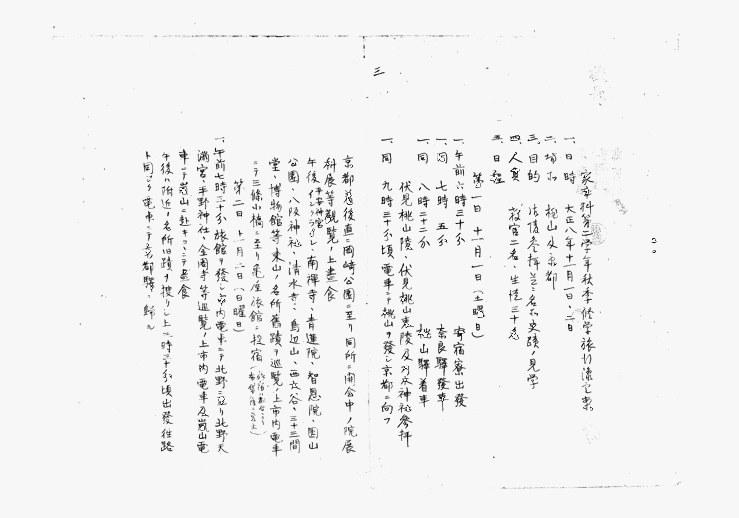 三
家事科第二学年秋季修学旅行決定案
一、日時 大正八年十一月一日、二日
二、場所 桃山及京都
三、目的 参拝並ニ名所史蹟ノ見学
四、人員 教官二名、生徒三十名
五、日程
第一日 十一月一日(土曜日)
一、午前六時三十分 寄宿寮出發
一、同 七時 五分 奈良驛發車
一、同 八時二十二分 桃山驛着車
伏見桃山陵、伏見桃山東陵及乃木神社参拝
一、同 九時三十分頃電車ニテ桃山ヲ發シ京都ニ向フ
京都着後直ニ岡崎公園ニ至リ同所ニ開会中ノ院展
科展等観覧ノ上昼食
午後平安神宮インクライン、南禅寺、青蓮院、智恩院、圓山
公園、八阪神社、清水寺、鳥辺山、西大谷、三十三間
堂、博物館等東山ノ名所舊蹟ヲ巡覧ノ上市内電車
ニテ三條小橋ニ至リ亀屋旅館ニ投宿
第二日 十一月二日(日曜日)
一、午前七時三十分旅館ヲ發シ市内電車ニテ北野ニ至リ北野天
満宮、平野神社、金閣寺等巡覧ノ上市内電車及嵐山電
車ニテ嵐山ニ赴キココニテ昼食
午後ハ附近ノ名所旧蹟ヲ探リシ上二時三十分頃出發往路
ト同ジク電車ニテ京都驛ニ歸ル